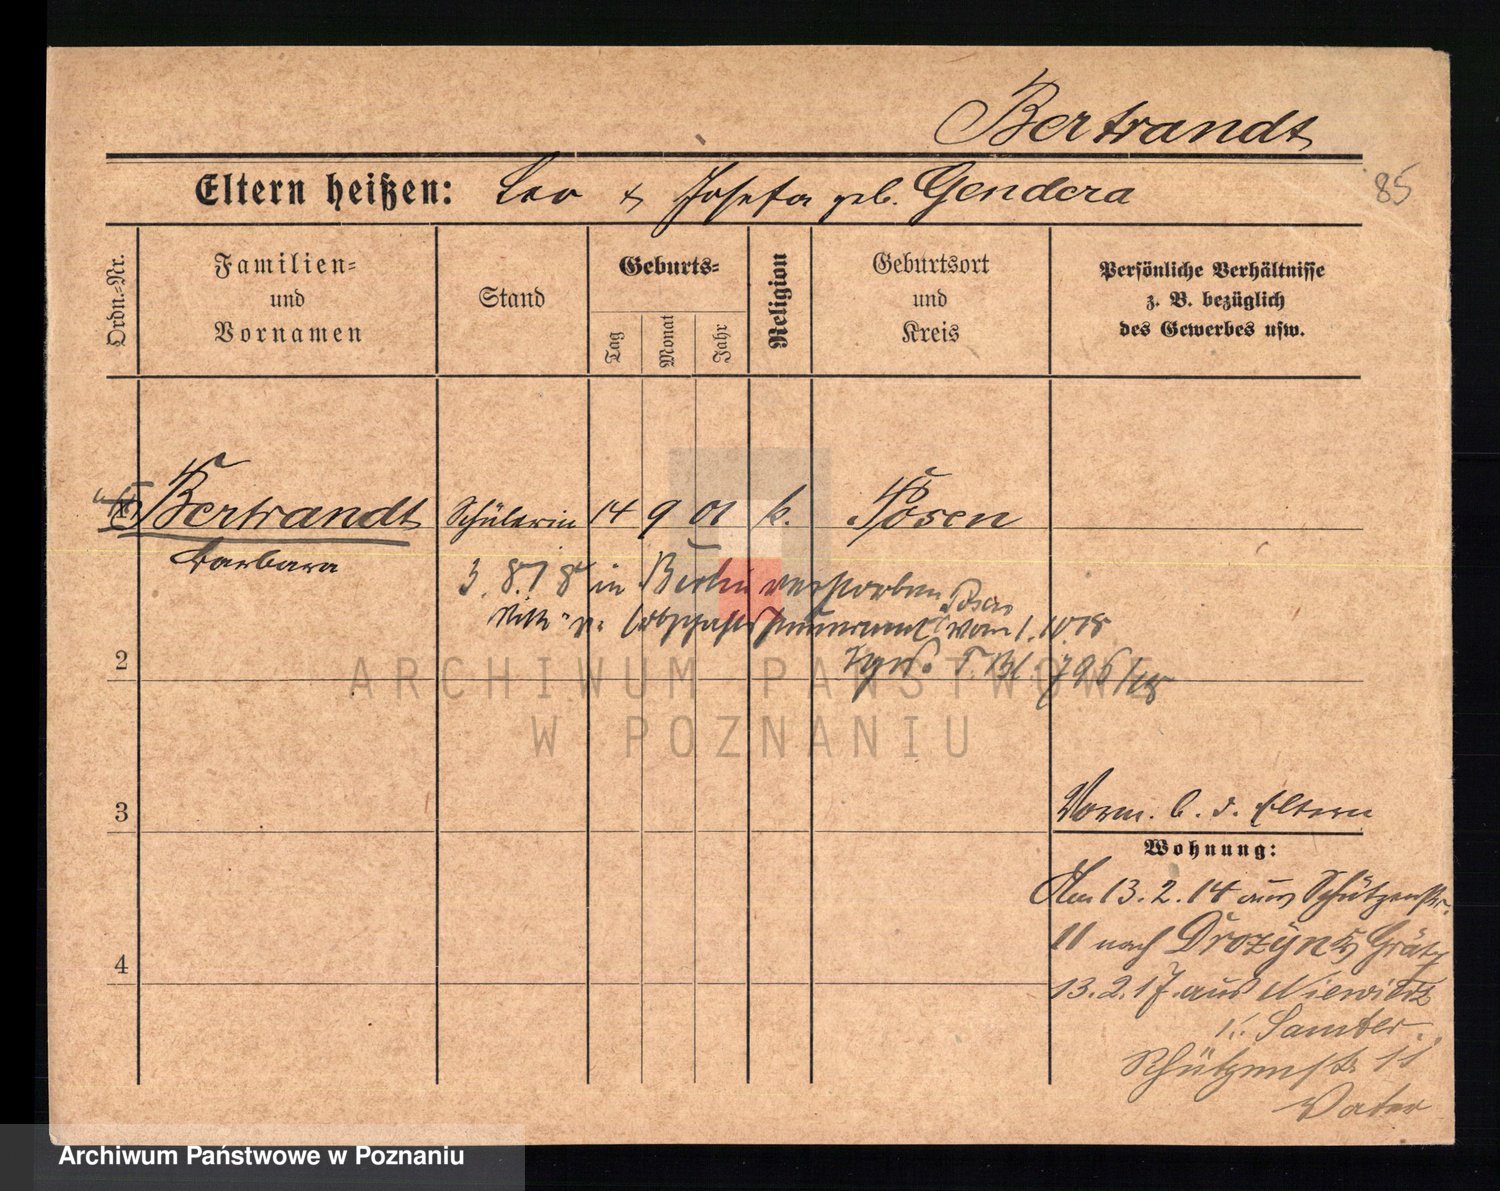 Bertrandt
Eltern heißen: Leo & Josefa geb. Gendera
85
Ordn.-Nr.
Familien-
und
Vornamen
Stand
Geburts-
Tag
Monat
Jahr
Religion
Geburtsort
und
Kreis
Persönliche Verhältnisse
z. B. bezüglich
des Gewerbes usw.
Bertrandt Schülerin 14 9 01 k. Posen
Barbara
3.8.18 in Berlin verstorben
vom 1.10.18
2
T. Bl. 796/18
ARCHIWUM PAŃSTWOWE
W POZNANIU
3
Vorm. b. d. Eltern
Wohnung:
Am 13.2.14 aus Schützenstr.
11 nach Drozyn Grätz
4
13.2.17 aus
Samter
Schützenstr 11
Vater
Archiwum Państwowe w Poznaniu